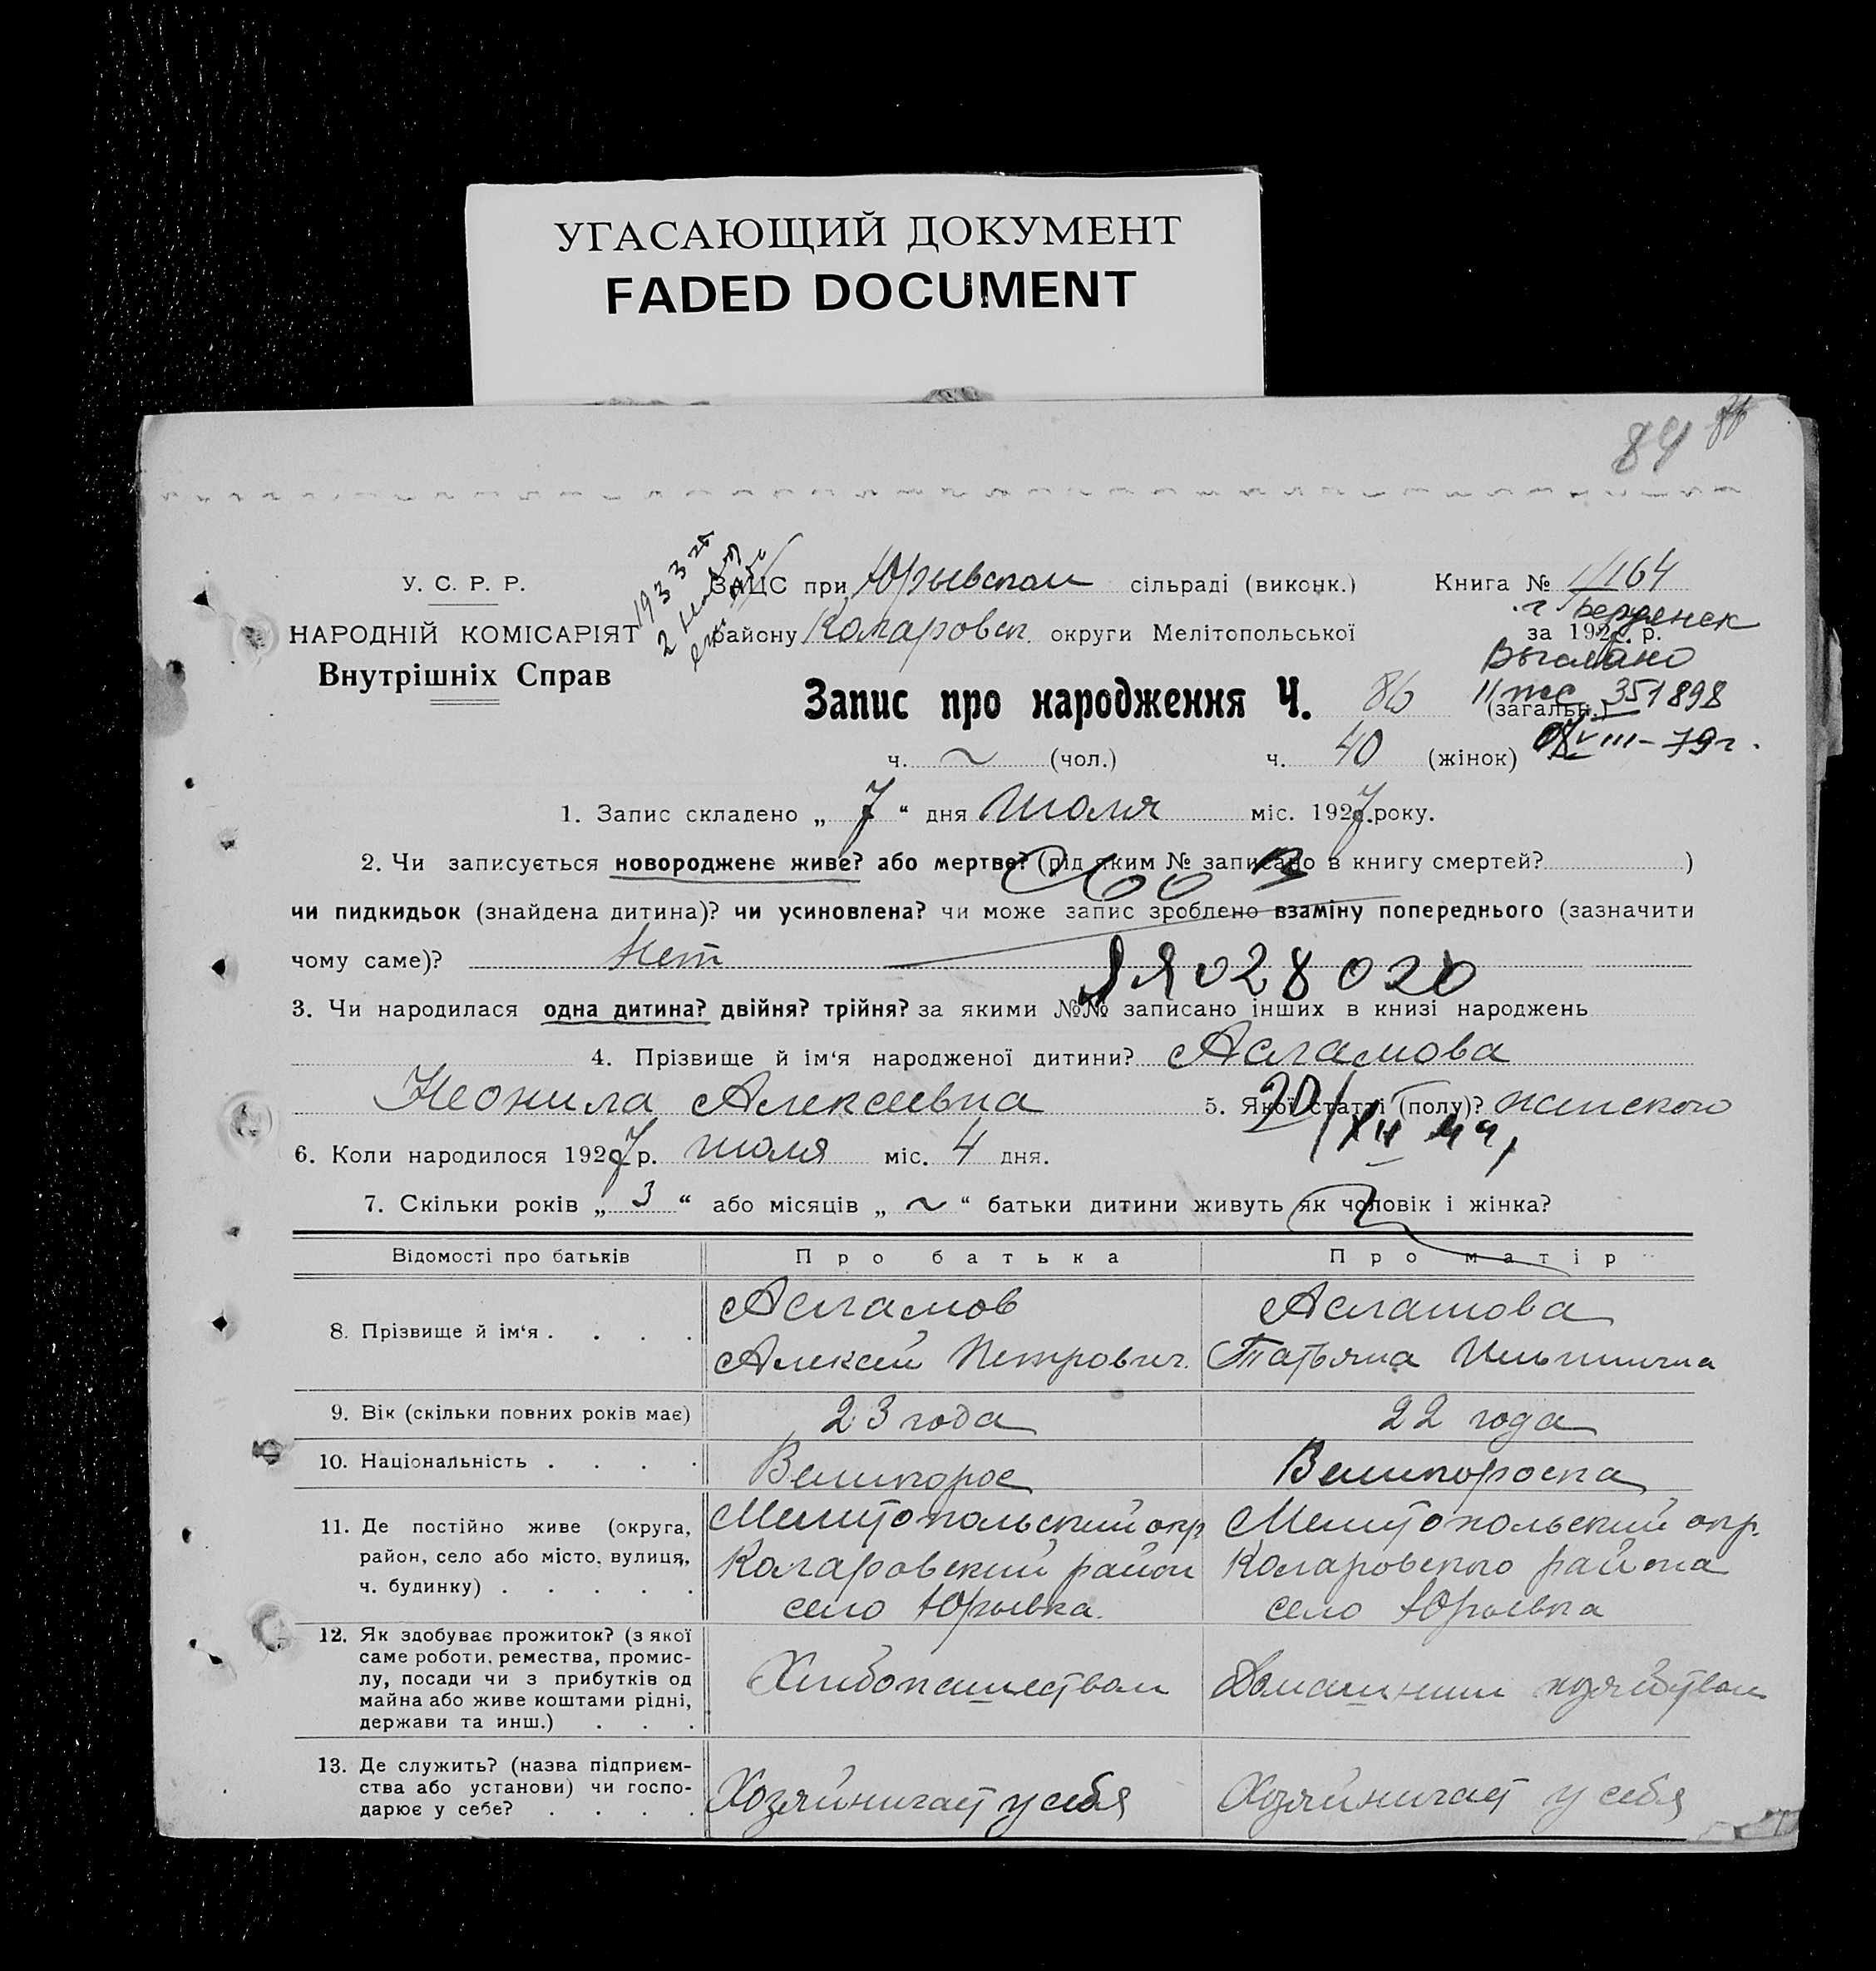 УГАСАЮЩИЙ ДОКУМЕНТ
FADED DOCUMENT
84
У. С. Р. Р.
НАРОДНІЙ КОМІСАРІЯТ
Внутрішніх Справ
1933
2
ЗАЦС при Юрьевском сільраді (виконк.)
району Коларовск. округи Мелітопольської
Книга № 1/164
г Бердянск
за 1927 р.
Выслано
351898
VIII-79г.
Запис про народження Ч. 86 (загальн.)
ч. ~ (чол.) ч. 40 (жінок)
1. Запис складено „ 7 “ дня июля міс. 1927 року.
2. Чи записується новороджене живе? або мертве? (під яким № записано в книгу смертей? )
чи пидкидьок (знайдена дитина)? чи усиновлена? чи може запис зроблено взаміну попереднього (зазначити
чому саме)? Нет
ЯЯ 028020
3. Чи народилася одна дитина? двійня? трійня? за якими №№ записано інших в книзі народжень
4. Прізвище й ім‘я народженої дитини? Асламова
Неонила Алексеевна 5. Якої статті (полу)? женского
20/XII 44
6. Коли народилося 1927 р. июля міс. 4 дня.
7. Скільки років „ 3 “ або місяців „ ~ “ батьки дитини живуть як чоловік і жінка?
Відомості про батьків Про батька Про матір
8. Прізвище й ім‘я . . . .
Асламов
Алексей Петрович.
Асламова
Татьяна Ильинична
9. Вік (скільки повних років має) 23 года 22 года
10. Національність . . . . Великорос Великороска
11. Де постійно живе (округа,
район, село або місто, вулиця,
ч. будинку) . . . . .
Мелитопольский окр.
Коларовский район
село Юрьевка.
Мелитопольский окр.
Коларовского района
село Юрьевка
12. Як здобуває прожиток? (з якої
саме роботи, ремества, промис-
лу, посади чи з прибутків од
майна або живе коштами рідні,
держави та инш.) . . .
Хлибопашеством
Домашним хозяйством
13. Де служить? (назва підприєм-
ства або установи) чи госпо-
дарює у себе? . . . .
Хозяйничает у себя
Хозяйничает у себя